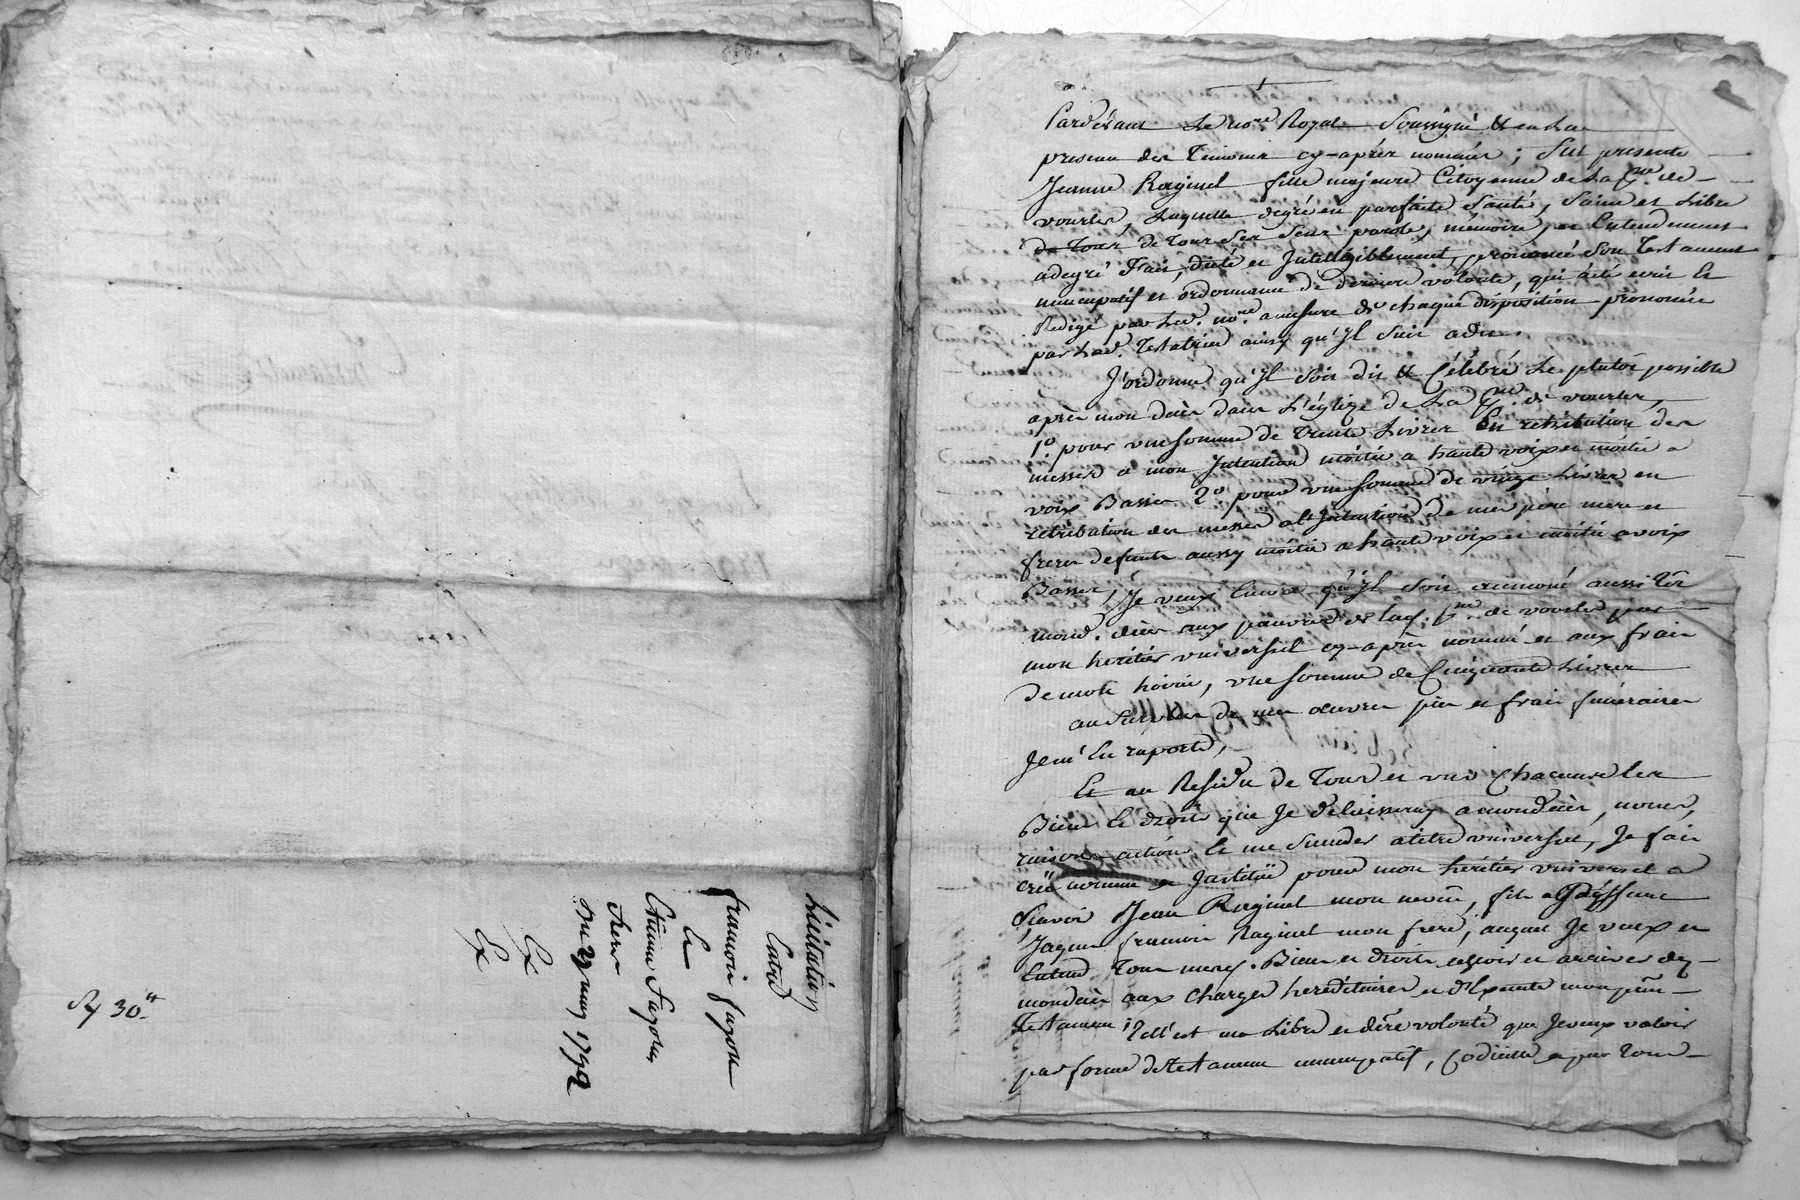 Licitation
Entre
francois fayolle
Et
Etienne Fayolle
frere
Du 27 juin 1792
Ex
Ex
Rx 30 ₶
Pardevant Le no.re Royal Soussigné Et en La
presence des Temoins cy-après nommés ; fut presente
Jeanne Raginel fille majeure Citoyenne de La p.sse de
vourles, Laquelle degré en parfaite Santé, Saine et Libre
de Tous de Tous Ses Sens parole, mémoire, et Entendement
adegré Fait, dicté et Intelligiblement, prononcé Son Testament
nuncupatif et ordonnance de derniere volonté, qui a été ecrit Et
Redigé par Led. no.re amesure de chaque disposition prononcée
par Lad. Testatrice ainsy qu'Il Suit adire.
J'ordonne qu'Il Soit dit Et Célébré Le plutôt possible
après mon décès dans L'église de La p.sse de vourles,
1.o pour une Somme de Trente Livres En retribution des
messes a mon Intention moitié a haute voix et moitié a
voix Basse 2.o pour une Somme de vingt Livres en
retribution des messes a L'Intention de mes pere mere et
freres defunts aussy moitié a haute voix et moitié a voix
Basse, Je veux Encore qu'Il Soit aumoné aussitôt
mond. décès aux pauvres de lad. p.sse de vourles par
mon heritier universel cy-après nommé et aux frais
de mon hoirie, une Somme de Cinquante Livres
au Surplus de mes oeuvres pies et frais funéraires
Je m'En raporte,
Et au Residu de Tous et uns Chacuns les
Biens Et droits que Je delaisseray a mon décès, noms,
raisons actions Et me Succeder a titre universel, Je fais
créé nomme et Institüe pour mon héritier universel a
Scavoir Jean Raginel mon neveu, fils a
Jaques francois Raginel mon frere, auquel Je veux et
Entend Tous mes d. Biens et droits echoir et arriver des
mon décès aux charges hereditaires et d'Executer mon pn̄t
Testament ; Tell'est ma Libre et dere volonté que Je veux valoir
par forme de testament nuncupatif, Codicille et par Toute